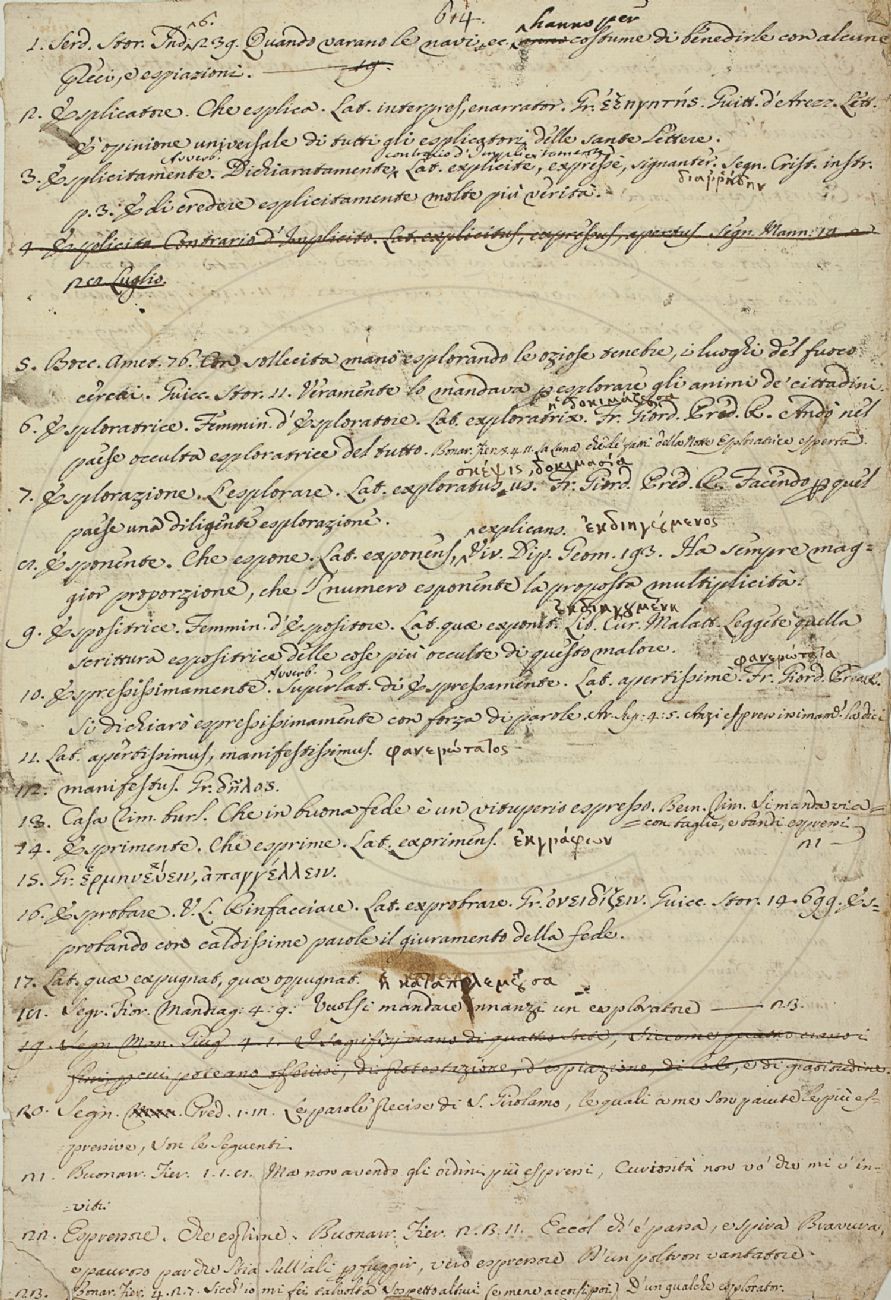 614.
1. Serd. Stor. Ind. 6. 239. Quando varano le navi, ec. hanno per costume di benedirle con alcune
preci, e espiazioni. 19.
2. Esplicatore. Che esplica. Lat. interpres, enarrator. Gr. ἐξηγητής. Guitt. d'Arezz. Lett.
È opinione universale di tutti gli esplicatori delle sante Lettere.
3. Esplicitamente. Avverb. Dichiaratamente, contrario d'Implicitamente. Lat. explicite, expresse, signanter. διαῤῥήδην Segn. Crist. instr.
p. 3. E di credere esplicitamente molte più verità.
4. Esplicito Contrario d'Implicito. Lat. explicitus, expressus, apertus. Segn. Mann.
Luglio.
5. Bocc. Amet. 76. Con sollecita mano esplorando le oziose tenebre, i luoghi del fuoco
cerchi. Guicc. Stor. 11. Veramente lo mandava per esplorare gli animi de' cittadini.
6. Esploratrice. Femmin. d'Esploratore. Lat. exploratrix. ἡ δοκιμάζουσα Fr. Giord. Pred. R. Andò nel
paese occulta esploratrice del tutto. Bonar. Fier. 3. 4. 11. La Luna che le fatti della Notte Esploratrice esperta.
7. Esplorazione. L'esplorare. Lat. exploratus, us. σκέψις, δοκιμασία Fr. Giord. Pred. R. Facendo per quel
paese una diligente esplorazione.
8. Esponente. Che espone. Lat. exponens, explicans. ἐκδιηγούμενος Viv. Dip. Geom. 193. Ha sempre mag=
gior proporzione, che 'l numero esponente la proposta multiplicità.
9. Espositrice. Femmin. d'Espositore. Lat. quæ exponit. ἐκδιηγουμένη Lib. Cur. Malatt. Leggete quella
scrittura espositrice delle cose più occulte di questo malore.
10. Espressissimamente. Avverb. Superlat. di Espressamente. Lat. apertissime. φανερώτατα Fr. Giord. Pred. R.
Si dichiarò espressissimamente con forza di parole. Ar. Sup. 4. 5. Anzi espressissimam. la dici
11. Lat. apertissimus, manifestissimus. φανερώτατος
12. manifestus. Gr. δῆλος.
13. Casa rim. burl. Che in buona fede è un vituperio espresso. Bern. rim. Si manda via
= con taglie, e bandi espressi
21
14. Esprimente. Che esprime. Lat. exprimens. ἐκγράφων
15. Gr. ἑρμηνεύειν, ἀπαγγέλλειν.
16. Esprobare. V. L. Rinfacciare. Lat. exprobrare. Gr. ὀνειδίζειν. Guicc. Stor. 14. 699. Es=
probando con caldissime parole il giuramento della fede.
17. Lat. quæ expugnat, quæ oppugnat. ἡ καταπολεμοῦσα
18. Segr. Fior. Mandrag. 4. 9. Vuolsi mandare innanzi un esploratore — 23.
19. Segn. Man. Giug. 4. 1. I Sagrifizj erano di quattro sorte, siccome quattro erano i
fini per cui poteano offerirsi, di protestazione, d'espiazione, di lode, e di gratitudine.
20. Segn. Pred. 1. 11. Le parole precise di S. Girolamo, le quali a me son parute le più es=
pressive, son le seguenti.
21. Buonarr. Fier. 1. 1. 8. Ma non avendo gli ordini più espressi, Curiosità non vo' che mi c'in=
=viti.
22. Espressore. Che esprime. Buonarr. Fier. 2. 3. 11. Eccol ch'è passa, e spira Bravura,
e pauroso par che stia sull'ali per fuggir, vero espressore D'un poltron vantatore.
23. Bonar. Fier. 4. 2. 7. Sicch'io mi fei talvolta Sospetto altrui (e mene accorsi poi) D'un qualche esplorator.